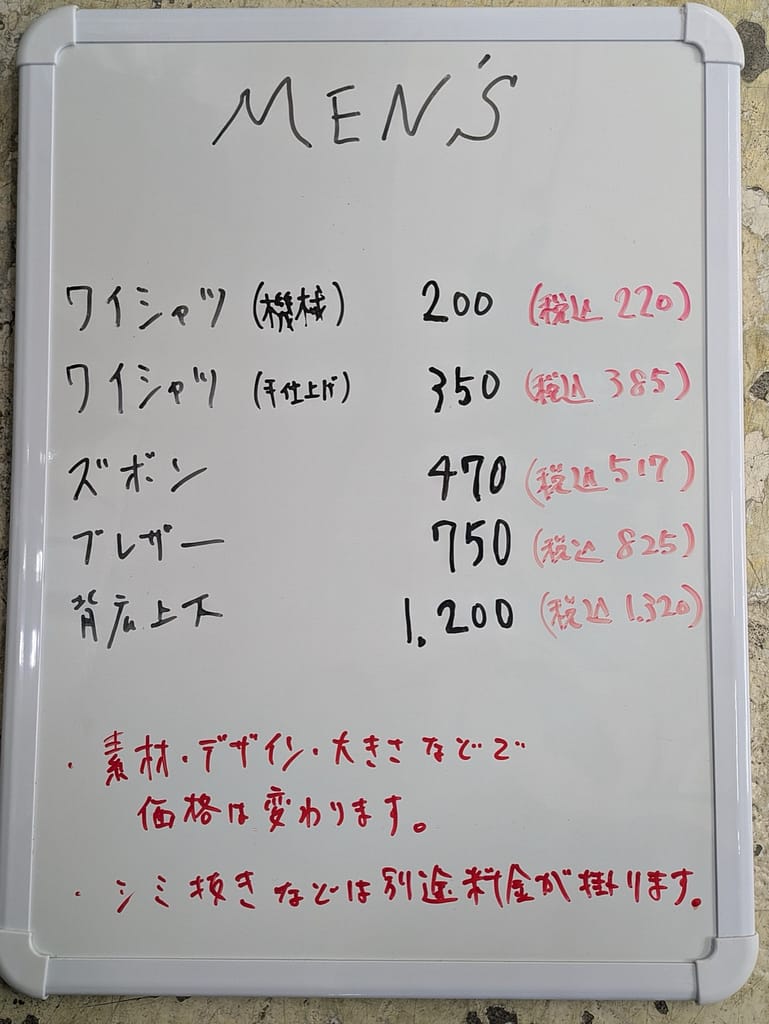 MEN'S
ワイシャツ (機械) 200 (税込 220)
ワイシャツ (手仕上げ) 350 (税込 385)
ズボン 470 (税込 517)
ブレザー 750 (税込 825)
背広上下 1.200 (税込 1.320)
・素材・デザイン・大きさなどで
価格は変わります。
・シミ抜きなどは別途料金が掛ります。